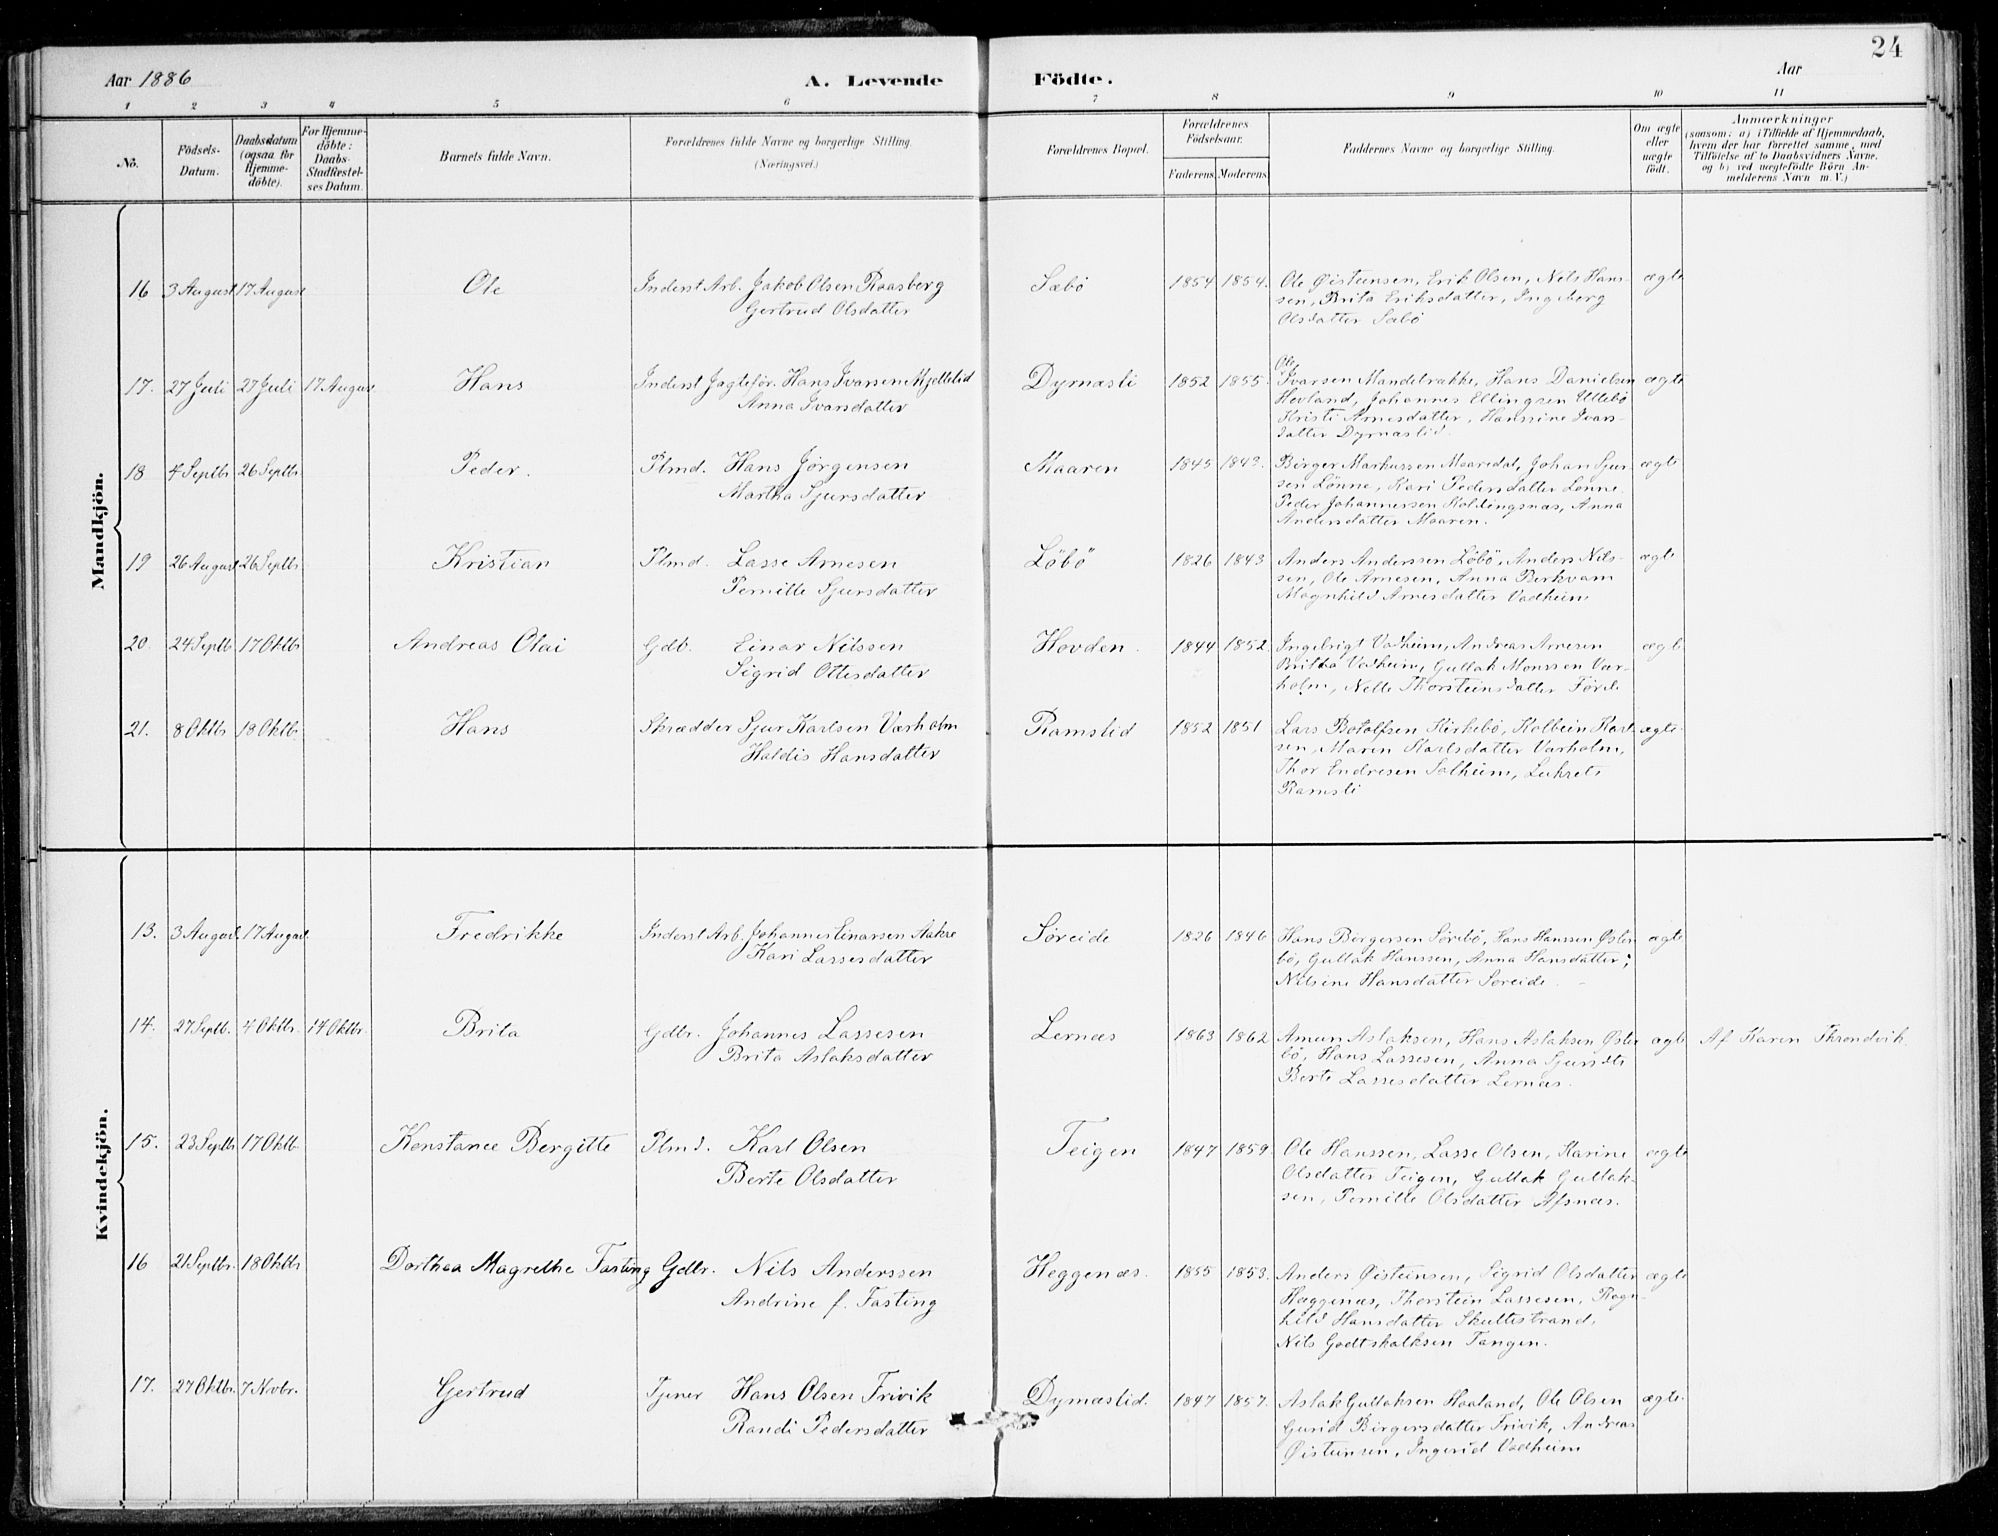 24
Aar 1886
A. Levende
Födte.
Aar
1 2 3 4 5 6 7 8 9 10 11
No.
Födsels-
Datum.
Daabsdatum
(ogsaa for
Hjemme-
döbte).
For Hjemme-
döbte:
Daabs-
Stadfæstel-
ses Datum.
Barnets fulde Navn.
Forældrenes fulde Navne og borgerlige Stilling.
(Næringsvei.)
Forældrenes Bopæl.
Forældrenes
Födselsaar.
Faderens. Moderens.
Faddernes Navne og borgerlige Stilling.
Om ægte
eller
uægte
födt.
Anmærkninger
(saasom: a) i Tilfælde af Hjemmedaab,
hvem der har forrettet samme, med
Tilföielse af to Daabsvidners Navne,
og b) ved uægtefödte Börn An-
melderens Navn m. V.)
Mandkjön.
16 3 August 17 August Ole Inderst Arb. Jakob Olsen Raasberg Sæbö 1854 1854. Ole Øisteinsen, Erik Olsen, Nils Hans- ægte
Gertrud Olsdatter sen, Brita Eriksdatter, Ingeborg
Olsdatter Sæbö
17. 27 Juli 27 Juli 17 August Hans Inderst Jagtefør. Hans Ivarsen Mjellelid Dyrnæsli 1852 1855. Ole
Ivarsen Mandelrakke, Hans Danielsen ægte
Anna Ivarsdatter Hovland, Johannes Ellingsen Ullebö
Kristi Arnesdatter, Hansine Ivars-
datter Dyrnæslid.
18 4 Septbr. 26 Septbr. Peder. Plmd. Hans Jørgensen Maaren 1845 1843. Börger Markussen Maaredal, Johan Sjur- ægte
Martha Sjursdatter sen Lönne, Kari Pedersdatter Lönne
Peder Johannessen Kollingsnæs, Anna
Andersdatter Maaren.
19 26 August 26 Septbr Kristian Plmd. Lasse Arnesen Löbö 1826 1843 Anders Anderssen Löbö, Anders Nils- ægte
Pernille Sjursdatter sen, Ole Arnesen, Anna Berkvam
Magnhild Arnesdatter Vadheim
20. 24 Septb. 17 Oktbr Andreas Olai Gdb. Einar Nilssen Hovden. 1844 1852. Ingebrigt Vadheim, Andreas Arnesen ægte
Sigrid Ottesdatter Britha Vadheim, Gullak Monssen Var-
holm, Nelle Thorsteinsdatter Förde
21. 8 Oktbr 18 Oktb. Hans Skrædder Sjur Karlsen Varholm Ramslid 1852 1851 Lars Botolfsen Kirkebö, Kolbein Karl- ægte.
Haldis Hansdatter sen, Maren Karlsdatter Varholm,
Thor Endresen Solheim,
Ramsli
Kvindekjön.
13. 3 August. 17 August. Fredrikke Inderst Arb. Johannes Einarsen Aakre Söreide 1826 1846 Hans Börgersen Sörebö, Hans Hanssen Øster- ægte
Kari Lassesdatter bö, Gullak Hanssen, Anna Hansdatter,
Nilsine Hansdatter Söreide.
14. 27 Septb. 4 Oktbr. 14 Oktbr. Brita Gdbr. Johannes Lassesen Lernæs 1863 1862 Amun Aslaksen, Hans Aslaksen Øster- ægte Af Karen Throndvik.
Brita Aslaksdatter bö, Hans Lassesen, Anna Sjursdtr
Berte Lassesdatter Lernæs.
15. 23 Septbr 17 Oktb. Konstance Bergitte Plmd. Karl Olsen Teigen 1847 1859. Ole Hanssen, Lasse Olsen, Karine ægte
Berte Olsdatter Olsdatter Teigen, Gullak Gullak-
sen, Pernille Olsdatter Afsnæs.
16 21 Septbr. 18 Oktbr Dorthea Magrethe Fasting Gdbr. Nils Anderssen Heggenæs. 1855 1853. Anders Øisteinsen, Sigrid Olsdatter ægte
Andrine f. Fasting Hæggenæs, Thorstein Lassesen, Ragn-
hild Hansdatter Skullestrand,
Nils Godtskalksen Tangen.
17. 27 Oktbr. 7 Novbr. Gertrud Tjener Hans Olsen Frivik Dyrnæslid. 1847 1857. Aslak Gullaksen Haaland, Ole Olsen ægte.
Randi Pedersdatter Gurid Börgersdatter Frivik, Andreas
Øisteinsen, Ingerid Vadheim